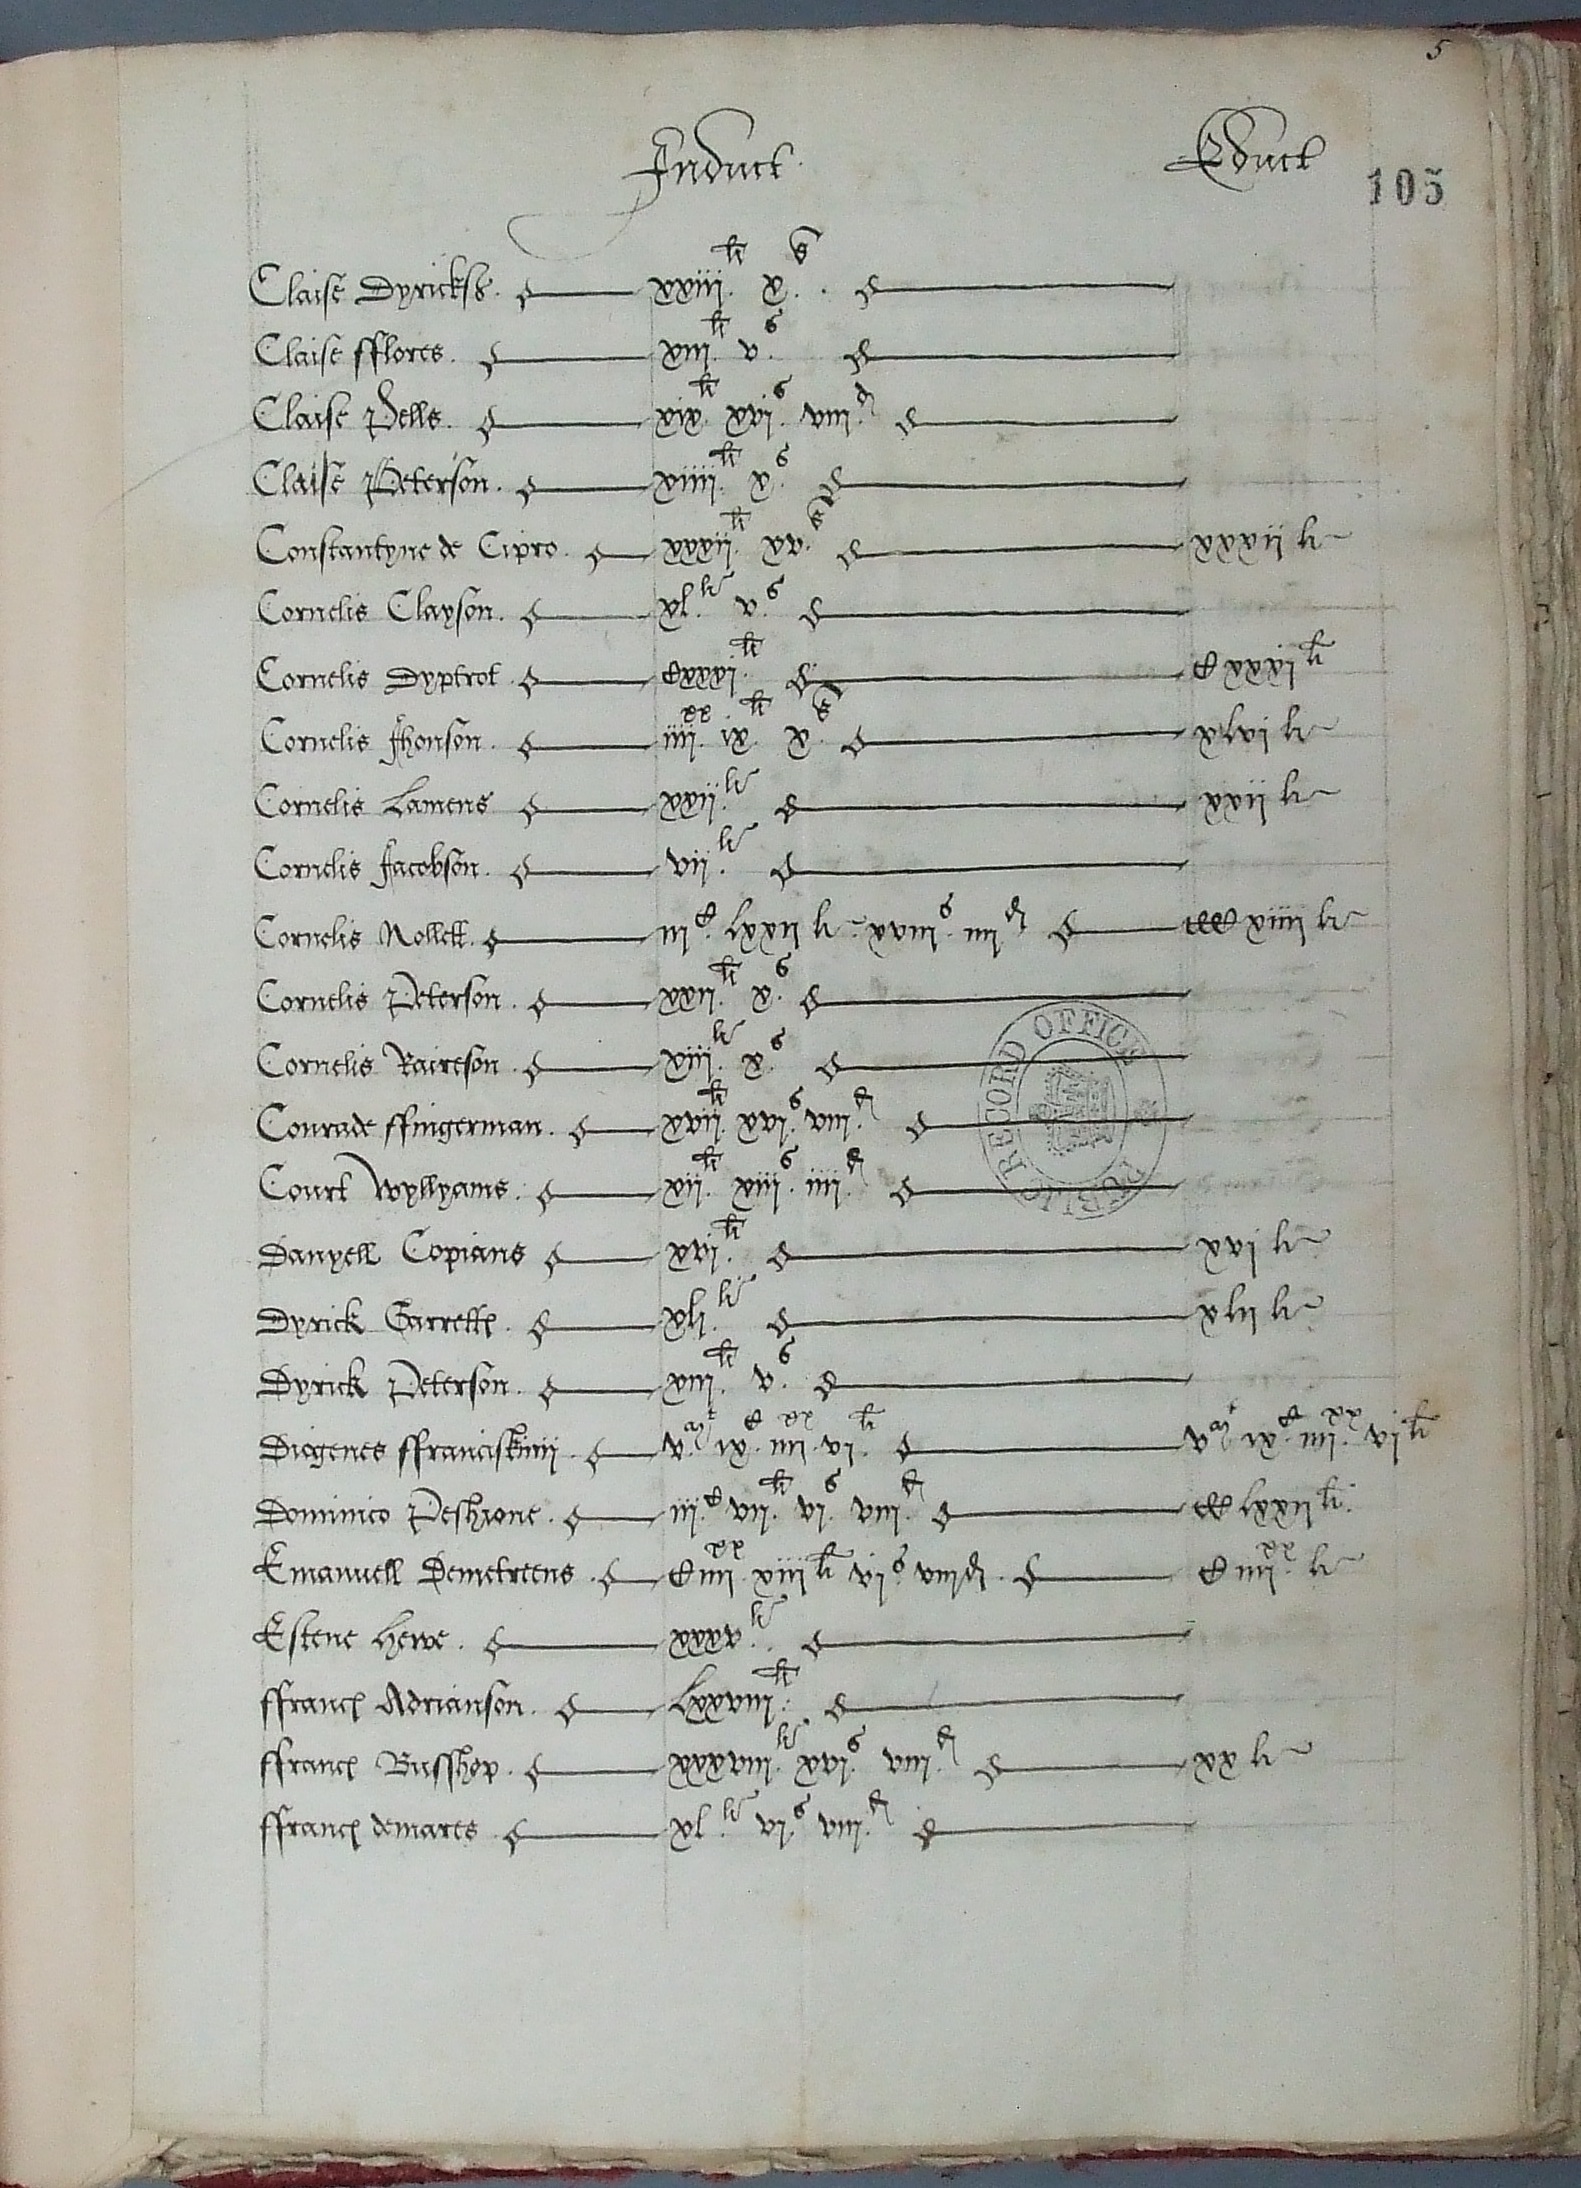 5
Induct Educt
105
Claise Dyricks xxiii li x s
Claise fflores xiii li v s
Claise Pells xix li xvi s viii d
Claise Peterson xiiii li x s
Constantyne de Cipro xxxii li xv s xxxii li
Cornelis Clayson xl li v s
Cornelis Dyptrot Cxxxvi li C xxxvi li
Cornelis Jhonson iiii xx ix li x s xlvi li
Cornelis Lamens xxii li xxii li
Cornelis Jacobson vii li
Cornelis Nollett iii C lxxii li xviii s iiii d CCC xiiii li
Cornelis Peterson xxii li x s
Cornelis Raireson xiii li x s
Conrade ffingerman xvii li xvi s viii d
Court Wyllyams xii li xiii s iiii d
Danyell Copians xvi li xvi li
Dyrick Garrett xli li xlii li
Dyrick Peterson xiii li v s
Diogenes ffranciskinij v M ix C iiii xx vi li v M ix C iiii xx vi li
Dominico iii C vii li vi s viii d CC lxxii li
Emanuell Demetreens C iiii xx xiii li vi s viii d C iiii xx li
Estene Herve xxxv li
ffranc Adrianson lxxviii li
ffranc Busshop xxxviii li xvi s viii d xx li
ffranc demares xl li vi s viii d
PUBLIC RECORD OFFICE